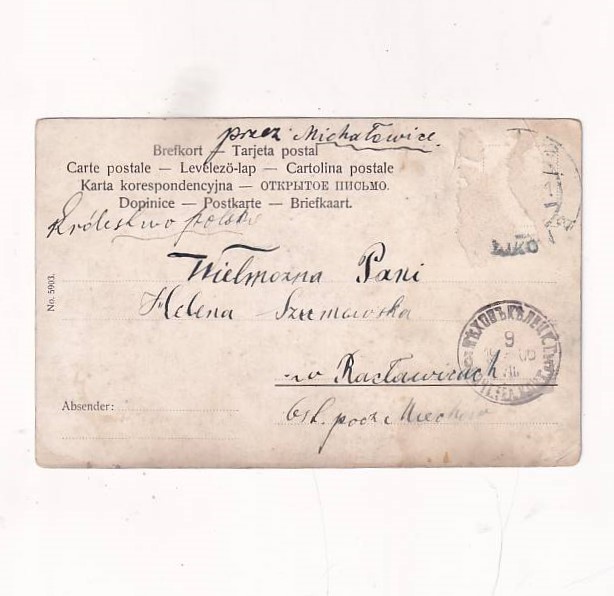 przez Michałowice.
Brefkort — Tarjeta postal
Carte postale — Levélező-lap — Cartolina postale
Karta korespondencyjna — ОТКРЫТОЕ ПИСЬМО.
Dopisnice — Postkarte — Briefkaart.
Królestwo polskie
Wielmożna Pani
Helena Szumowska
w Racławicach
No. 5903.
9
Absender:
poczt Miechow